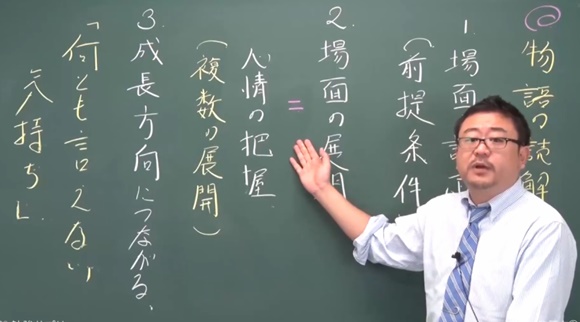 ◎物語の読解
1.場面
(前提条件
2.場面の展開
=
心情の把握
(複数の展開)
3.成長方向につながる、
「何とも言えない
気持ち」